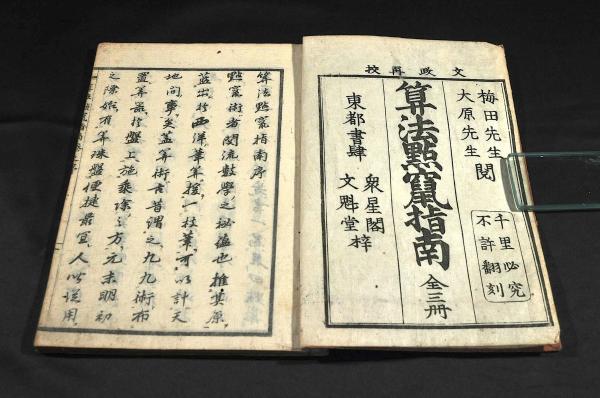 文政再校
梅田先生
大原先生
閲
千里必究
不許翻刻
算法點竄指南 全三冊
東都書肆
衆星閣
文魁堂
梓
算法點竄指南序
點竄術者関流數學之秘蘊也推其原
出於西洋筆算一枝筆可以計天
地間事矣蓋算術古昔謂之九九術布
置算器於盤上施乘除之方元末明初
之際始有算珠盤便捷最宜人以用